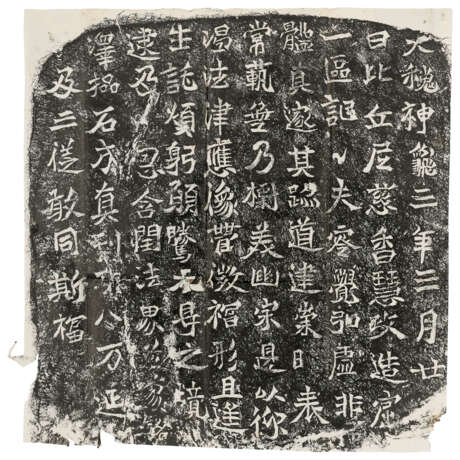 大魏神龜三年三月廿
日比丘尼慈香慧政造窟
一區記之夫零覺弘虛非
體真邃其迹道建崇日表
常範無乃標美幽宗是以仰
渴法津應像營微福形且遙
生託煩躬願騰无㝵之境
逮及恩含閏法界
澤石成真刊八万延
及三從敢同斯福